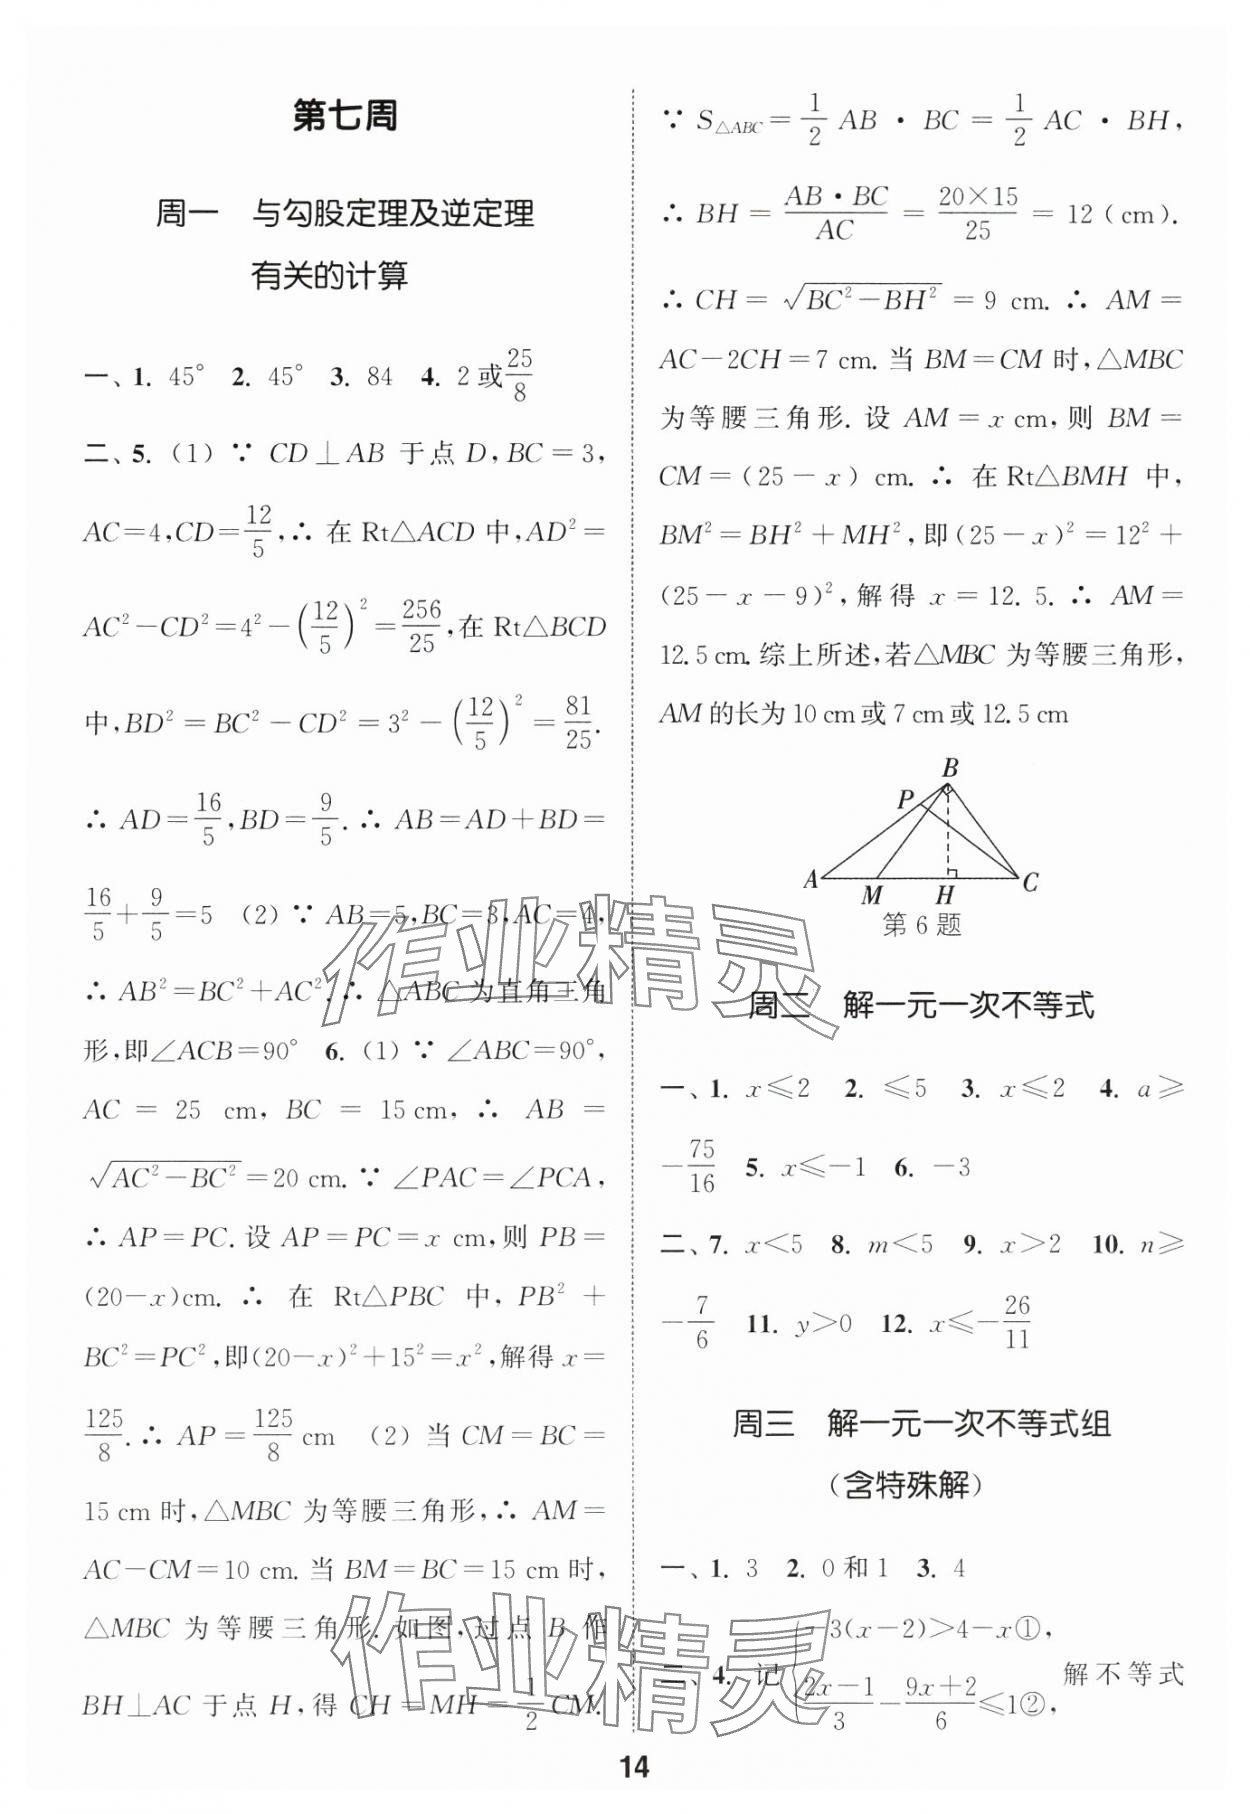 第七周
周一　与勾股定理及逆定理
有关的计算
一、1. 45°　2. 45°　3. 84　4. 2或25/8
二、5.（1）∵ CD⊥AB 于点 D,BC=3,
AC=4,CD=12/5,∴ 在 Rt△ACD 中,AD²=
AC²-CD²=4²-(12/5)²=256/25,在 Rt△BCD
中,BD²=BC²-CD²=3²-(12/5)²=81/25.
∴ AD=16/5,BD=9/5.∴ AB=AD+BD=
16/5+9/5=5　(2) ∵ AB=5,BC=3,AC=4,
∴ AB²=BC²+AC².∴ △ABC 为直角三角
形,即∠ACB=90°　6.（1）∵ ∠ABC=90°,
AC = 25 cm, BC = 15 cm, ∴ AB =
√(AC²-BC²)=20 cm.∵ ∠PAC=∠PCA,
∴ AP=PC.设 AP=PC=x cm,则 PB=
(20-x)cm. ∴ 在 Rt△PBC 中, PB²+
BC²=PC²,即(20-x)²+15²=x²,解得 x=
125/8.∴ AP=125/8 cm　(2) 当 CM=BC=
15 cm 时,△MBC 为等腰三角形,∴ AM=
AC-CM=10 cm.当 BM=BC=15 cm 时,
△MBC 为等腰三角形.如图,过点 B 作
BH⊥AC 于点 H,得 CH=MH=1/2 CM.
∵ S△ABC=1/2 AB·BC=1/2 AC·BH,
∴ BH=AB·BC/AC=20×15/25=12(cm).
∴ CH=√(BC²-BH²)=9 cm.∴ AM=
AC-2CH=7 cm.当 BM=CM 时,△MBC
为等腰三角形.设 AM=x cm,则 BM=
CM=(25-x) cm.∴ 在 Rt△BMH 中,
BM²=BH²+MH²,即(25-x)²=12²+
(25-x-9)²,解得 x=12.5.∴ AM=
12.5 cm.综上所述,若△MBC 为等腰三角形,
AM 的长为 10 cm 或 7 cm 或 12.5 cm
B
P
A M H C
第 6 题
周二　解一元一次不等式
一、1. x≤2　2. ≤5　3. x≤2　4. a≥
-75/16　5. x≤-1　6. -3
二、7. x<5　8. m<5　9. x>2　10. n≥
-7/6　11. y>0　12. x≤-26/11
周三　解一元一次不等式组
（含特殊解）
一、1. 3　2. 0 和 1　3. 4
二、4. 记{-3(x-2)>4-x①, (2x-1)/3-(9x+2)/6≤1②, 解不等式
14
作业精灵
作业精灵